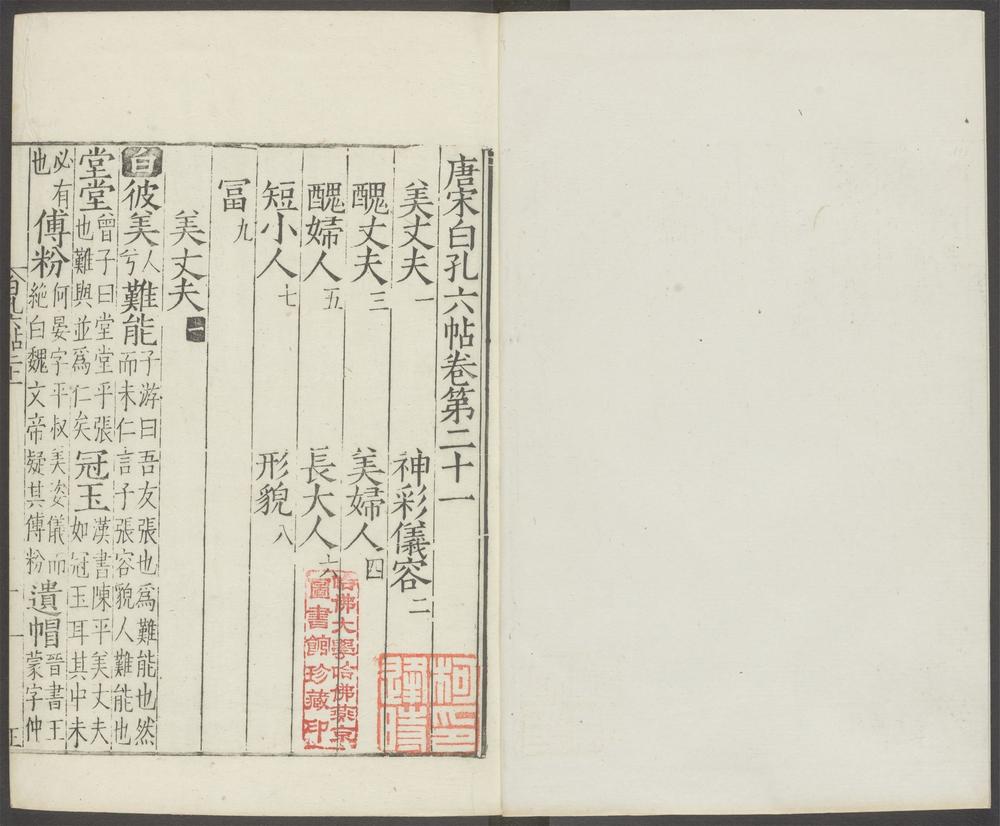 唐宋白孔六帖卷第二十一
美丈夫一 神彩儀容二
醜丈夫三 美婦人四
醜婦人五 長大人六
短小人七 形貌八
冨九
美丈夫一
白彼美人兮難能子游曰吾友張也爲難能也然而未仁言子張容貌人難能也
堂堂曾子曰堂堂乎張也難與並爲仁矣冠玉漢書陳平美丈夫如冠玉耳其中未
必有也傅粉何晏字平叔美姿儀而絶白魏文帝疑其傅粉遺帽晉書王蒙字仲
白孔六帖二十一
一
哈佛大學哈佛燕京
圖書館珍藏印
柯印
逢時